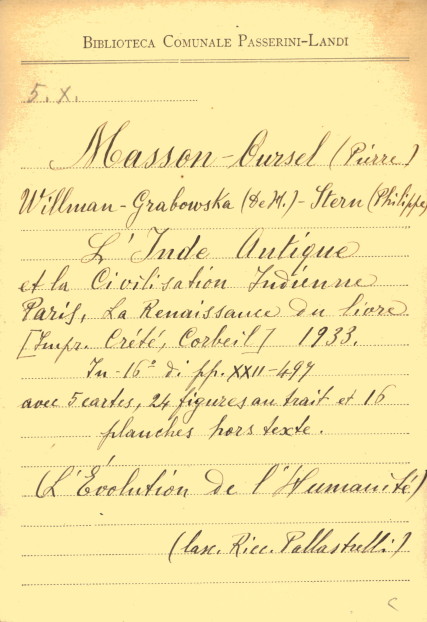 BIBLIOTECA COMUNALE PASSERINI-LANDI
5. X.
Masson-Oursel (Pierre)
Willman-Grabowska (De H.) - Stern (Philippe)
L'Inde Antique
et la Civilisation Indienne
Paris, La Renaissance du livre
[Impr. Crété, Corbeil] 1933.
In-16º di pp. XXII-497
avec 5 cartes, 24 figures au trait et 16
planches hors texte.
(L'Évolution de l'Humanité)
(lasc. Ricc. Pallastrelli)